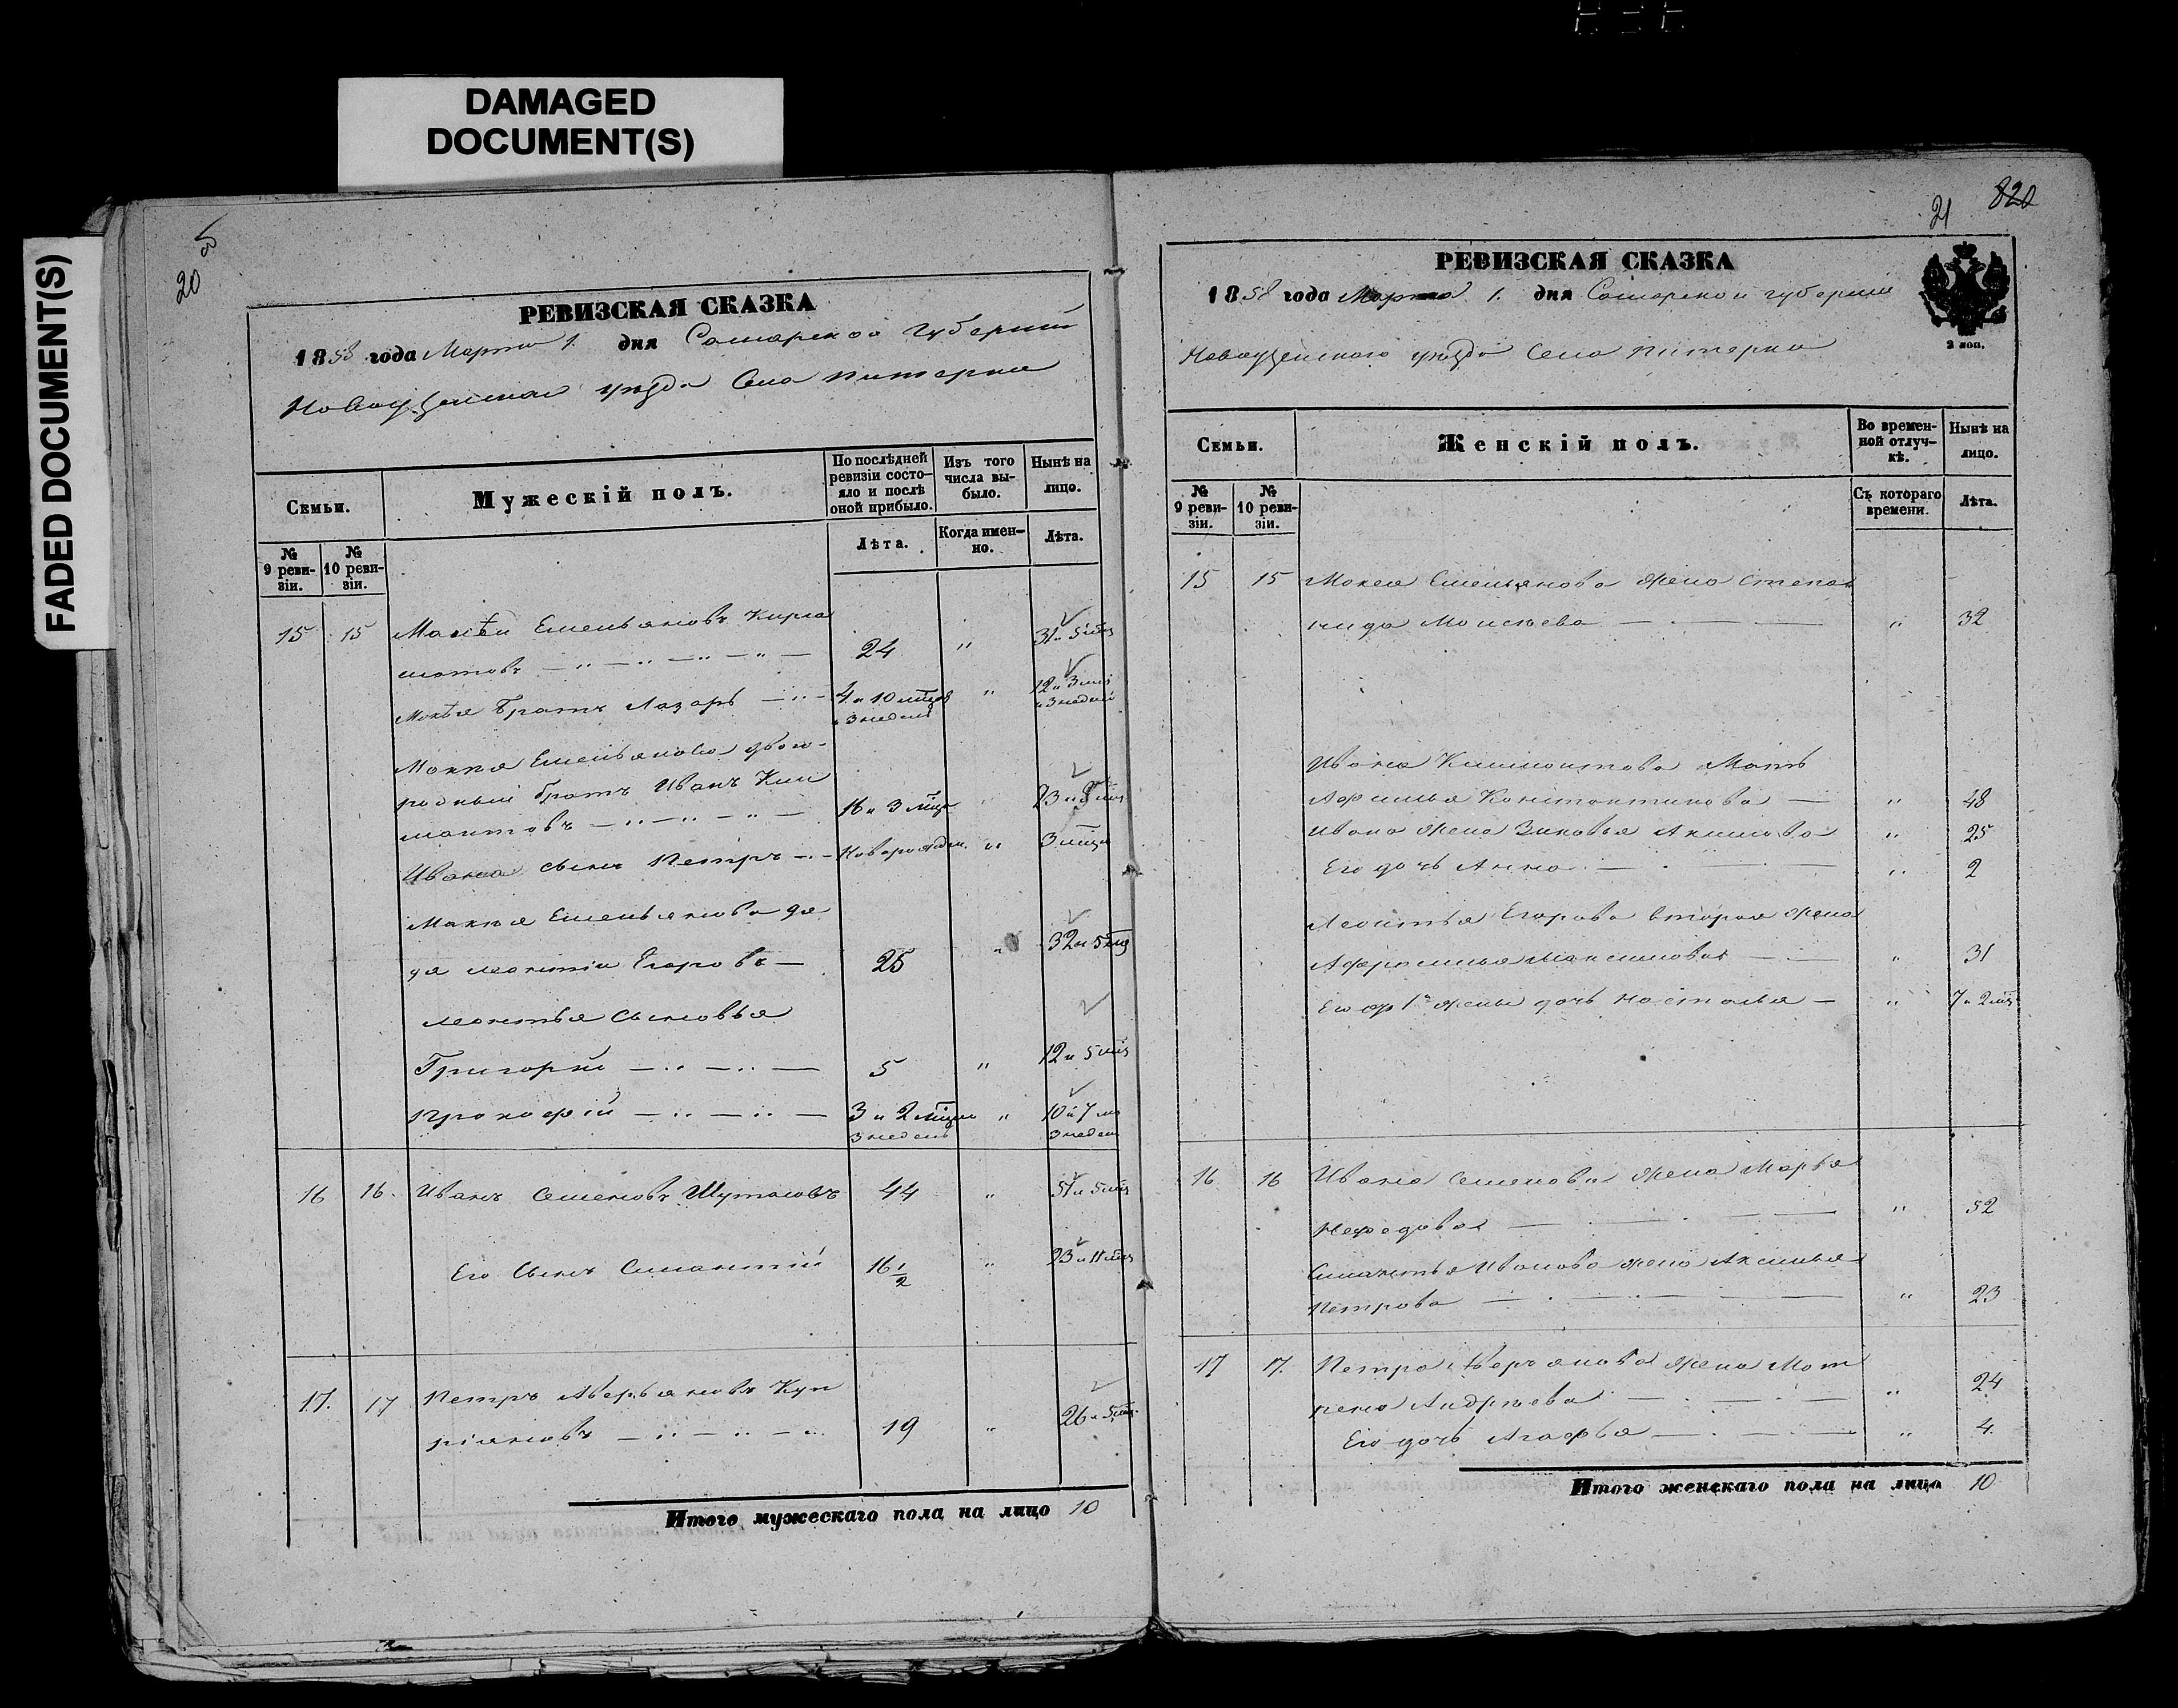 DAMAGED
DOCUMENT(S)
FADED DOCUMENT(S)
20
РЕВИЗСКАЯ СКАЗКА
1858 года Марта 1. дня Самарской Губернии
Новоузенскаго уѣзда Села Питерки
Семьи.
Мужескій полъ.
По послѣдней ревизіи состояло и послѣ оной прибыло.
Изъ того числа выбыло.
Нынѣ на лицо.
№ 9 ревизіи.
№ 10 ревизіи.
Лѣта.
Когда именно.
Лѣта.
15 15 Мокѣй Емельяновъ
24 " 31 и 5 мцъ
Мокѣя Братъ Лазарь 4 и 10 мцовъ " 12 и 3 мцъ
и 3 недели и 3 недели
Мокѣя Емельянова двою-
родный братъ Иванъ Кли
монтовъ 16 и 3 мцъ " 23 и 8 мцъ
Ивана сынъ Петръ Новорожден. " 3 мцъ
Мокѣя Емельянова дя
дя Леонтій Егоровъ 25 " 32 и 5 мцъ
Леонтья сыновья
Григорій 5 " 12 и 5 мцъ
Прокофій 3 и 2 мцъ " 10 и 7 м
3 недель 3 недел
16 16. Иванъ Семеновъ 44 " 51 и 5 мцъ
Его Сынъ Симантій 16 1/2 " 23 и 11 мцъ
17. 17 Петръ Аверьяновъ Куп
ріяновъ 19 " 26 и 5 мцъ
Итого мужескаго пола на лицо 10
21 820
РЕВИЗСКАЯ СКАЗКА
1858 года Марта 1. дня Самарской губернии
Новоузенскаго уѣзда Села Питерки
2 коп.
Семьи.
Женскій полъ.
Во временной отлучкѣ.
Нынѣ на лицо.
№ 9 ревизіи.
№ 10 ревизіи.
Съ котораго времени.
Лѣта.
15 15 Мокея Емельянова жена Степа
нида Моисеева " 32
Ивана Климонтова Мать
Афимья Константинова " 48
Ивана жена Зиновья Акимова " 25
Его дочь Анна " 2
Леонтья Егорова вторая жена
Афросинья Максимова " 31
Его от 1й жены дочь Настасья " 7 и 2 мцъ
16 16 Ивана Семенова жена Марья
Нефедова " 52
Симантья Иванова жена Аксинья
Петрова " 23
17 17. Петра Аверьянова жена Мат
рена Андреева " 24
Его дочь Агафья " 4.
Итого женскаго пола на лицо 10